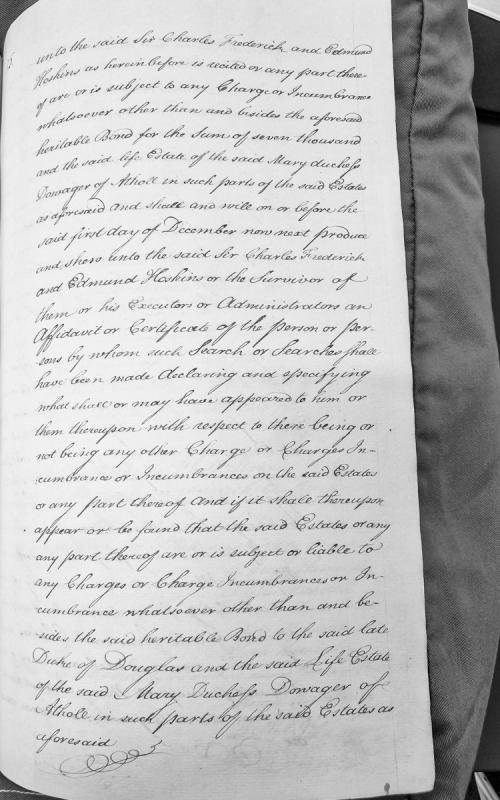 unto the said Sir Charles Frederick and Edmund
Hoskins as herein before is recited or any part there-
of are or is subject to any Charge or Incumbrance
whatsoever other than and besides the aforesaid
heritable Bond for the Sum of seven thousand
and the said life Estate of the said Mary duchess
Dowager of Atholl in such parts of the said Estates
as aforesaid and shall and will on or before the
said first day of December now next produce
and shew unto the said Sir Charles Frederick
and Edmund Hoskins or the Survivor of
them or his Executors or Administrators an
Affidavit or Certificate of the person or per-
sons by whom such Search or Searches shall
have been made declaring and specifying
what shall or may have appeared to him or
them thereupon with respect to there being or
not being any other Charge or Charges In-
cumbrance or Incumbrances on the said Estates
or any part thereof and if it shall thereupon
appear or be found that the said Estates or any
any part thereof are or is subject or liable to
any Charges or Charge Incumbrances or In-
cumbrance whatsoever other than and be-
sides the said heritable Bond to the said late
Duke of Douglas and the said Life Estate
of the said Mary Duchess Dowager of
Atholl in such parts of the said Estates as
aforesaid